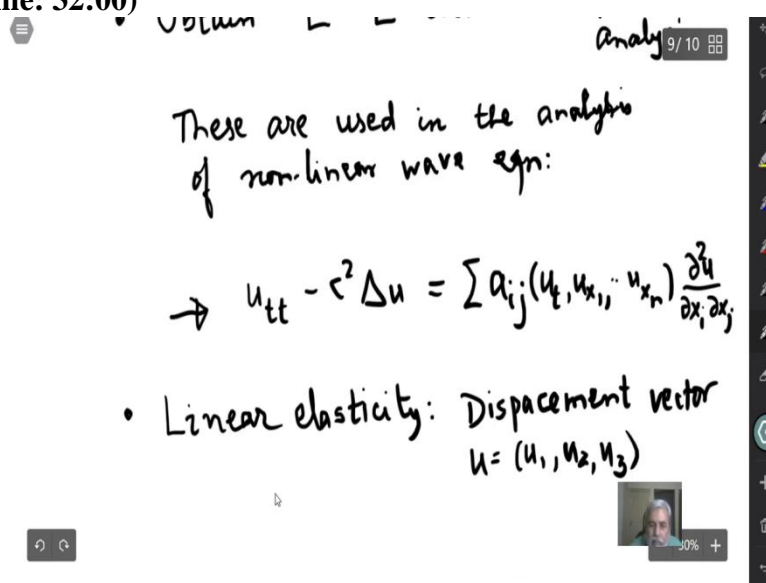 me: 32:00)
• Obtain
analy
9/10
These are used in the analysis
of non-linear wave eqn:
→ u_tt - c² Δu = Σ a_ij (u_t, u_x₁, ·· u_xₙ) ∂²u/∂x_i ∂x_j
• Linear elasticity: Dispacement vector
u = (u₁, u₂, u₃)
30%